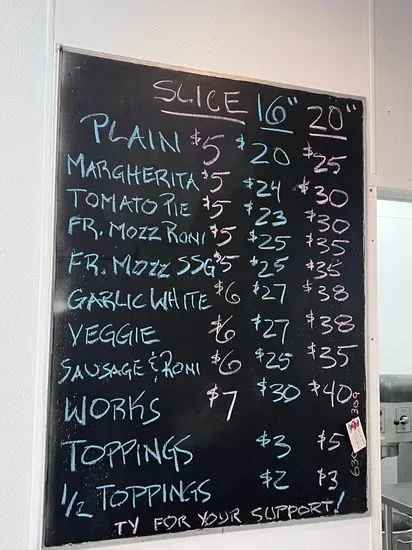 SLICE 16" 20"
PLAIN $5 $20 $25
MARGHERITA $5 $24 $30
TOMATO PIE $5 $23 $30
FR. MOZZ RONI $5 $25 $35
FR. MOZZ SSG $5 $25 $35
GARLIC WHITE $6 $27 $38
VEGGIE $6 $27 $38
SAUSAGE & RONI $6 $25 $35
WORKS $7 $30 $40
TOPPINGS $3 $5
1/2 TOPPINGS $2 $3
TY FOR YOUR SUPPORT!